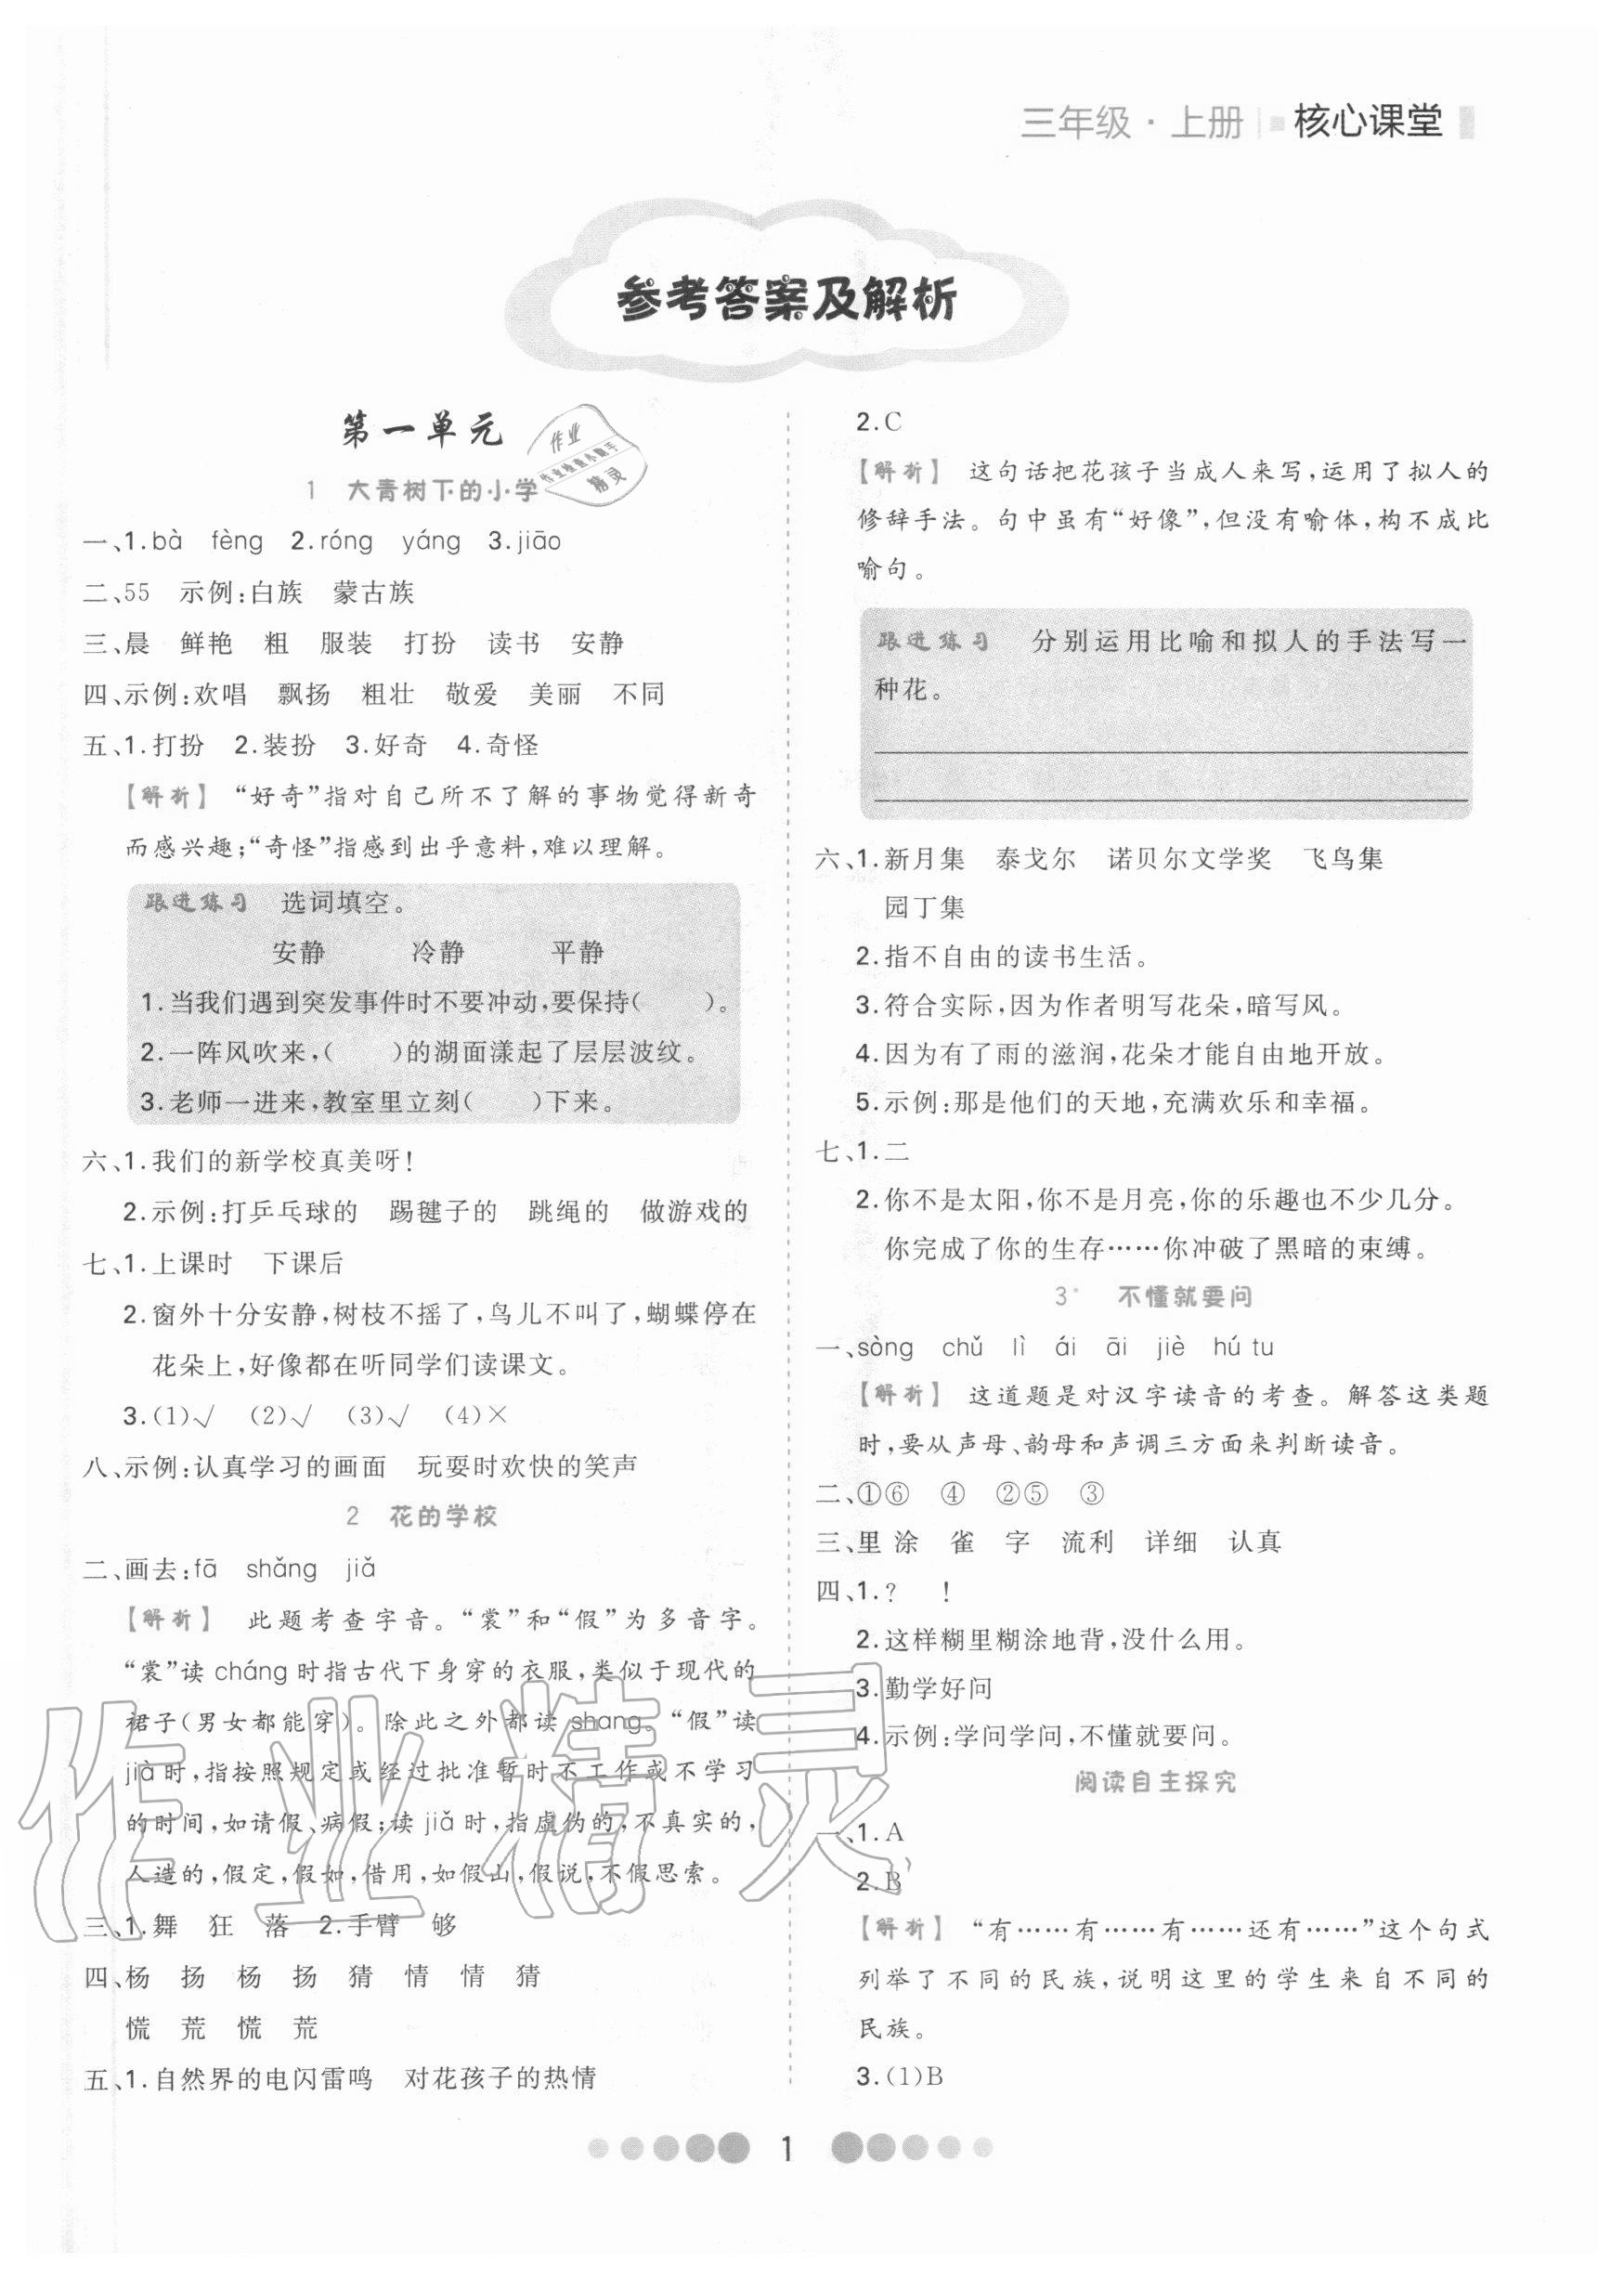 三年级·上册 核心课堂
参考答案及解析
第一单元
作业
作业检查小助手
精灵
1 大青树下的小学
一、1.bà fèng 2.róng yáng 3.jiāo
二、55 示例:白族 蒙古族
三、晨 鲜艳 粗 服装 打扮 读书 安静
四、示例:欢唱 飘扬 粗壮 敬爱 美丽 不同
五、1.打扮 2.装扮 3.好奇 4.奇怪
【解析】 “好奇”指对自己所不了解的事物觉得新奇
而感兴趣;“奇怪”指感到出乎意料,难以理解。
跟进练习 选词填空。
安静 冷静 平静
1.当我们遇到突发事件时不要冲动,要保持( )。
2.一阵风吹来,( )的湖面漾起了层层波纹。
3.老师一进来,教室里立刻( )下来。
六、1.我们的新学校真美呀!
2.示例:打乒乓球的 踢毽子的 跳绳的 做游戏的
七、1.上课时 下课后
2.窗外十分安静,树枝不摇了,鸟儿不叫了,蝴蝶停在
花朵上,好像都在听同学们读课文。
3.(1)√ (2)√ (3)√ (4)×
八、示例:认真学习的画面 玩耍时欢快的笑声
2 花的学校
二、画去:fā shǎng jiǎ
【解析】 此题考查字音。“裳”和“假”为多音字。
“裳”读 cháng 时指古代下身穿的衣服,类似于现代的
裙子(男女都能穿)。除此之外都读 shang。“假”读
jià 时,指按照规定或经过批准暂时不工作或不学习
的时间,如请假、病假;读 jiǎ 时,指虚伪的,不真实的,
人造的,假定,假如,借用,如假山,假说,不假思索。
三、1.舞 狂 落 2.手臂 够
四、杨 扬 杨 扬 猜 情 情 猜
慌 荒 慌 荒
五、1.自然界的电闪雷鸣 对花孩子的热情
2.C
【解析】 这句话把花孩子当成人来写,运用了拟人的
修辞手法。句中虽有“好像”,但没有喻体,构不成比
喻句。
跟进练习 分别运用比喻和拟人的手法写一
种花。
六、1.新月集 泰戈尔 诺贝尔文学奖 飞鸟集
园丁集
2.指不自由的读书生活。
3.符合实际,因为作者明写花朵,暗写风。
4.因为有了雨的滋润,花朵才能自由地开放。
5.示例:那是他们的天地,充满欢乐和幸福。
七、1.二
2.你不是太阳,你不是月亮,你的乐趣也不少几分。
你完成了你的生存……你冲破了黑暗的束缚。
3* 不懂就要问
一、sòng chǔ lì ái āi jiè hú tu
【解析】 这道题是对汉字读音的考查。解答这类题
时,要从声母、韵母和声调三方面来判断读音。
二、①⑥ ④ ②⑤ ③
三、里 涂 雀 字 流利 详细 认真
四、1.? !
2.这样糊里糊涂地背,没什么用。
3.勤学好问
4.示例:学问学问,不懂就要问。
阅读自主探究
一、1.A
2.B
【解析】 “有……有……有……还有……”这个句式
列举了不同的民族,说明这里的学生来自不同的
民族。
3.(1)B
作业精灵
1